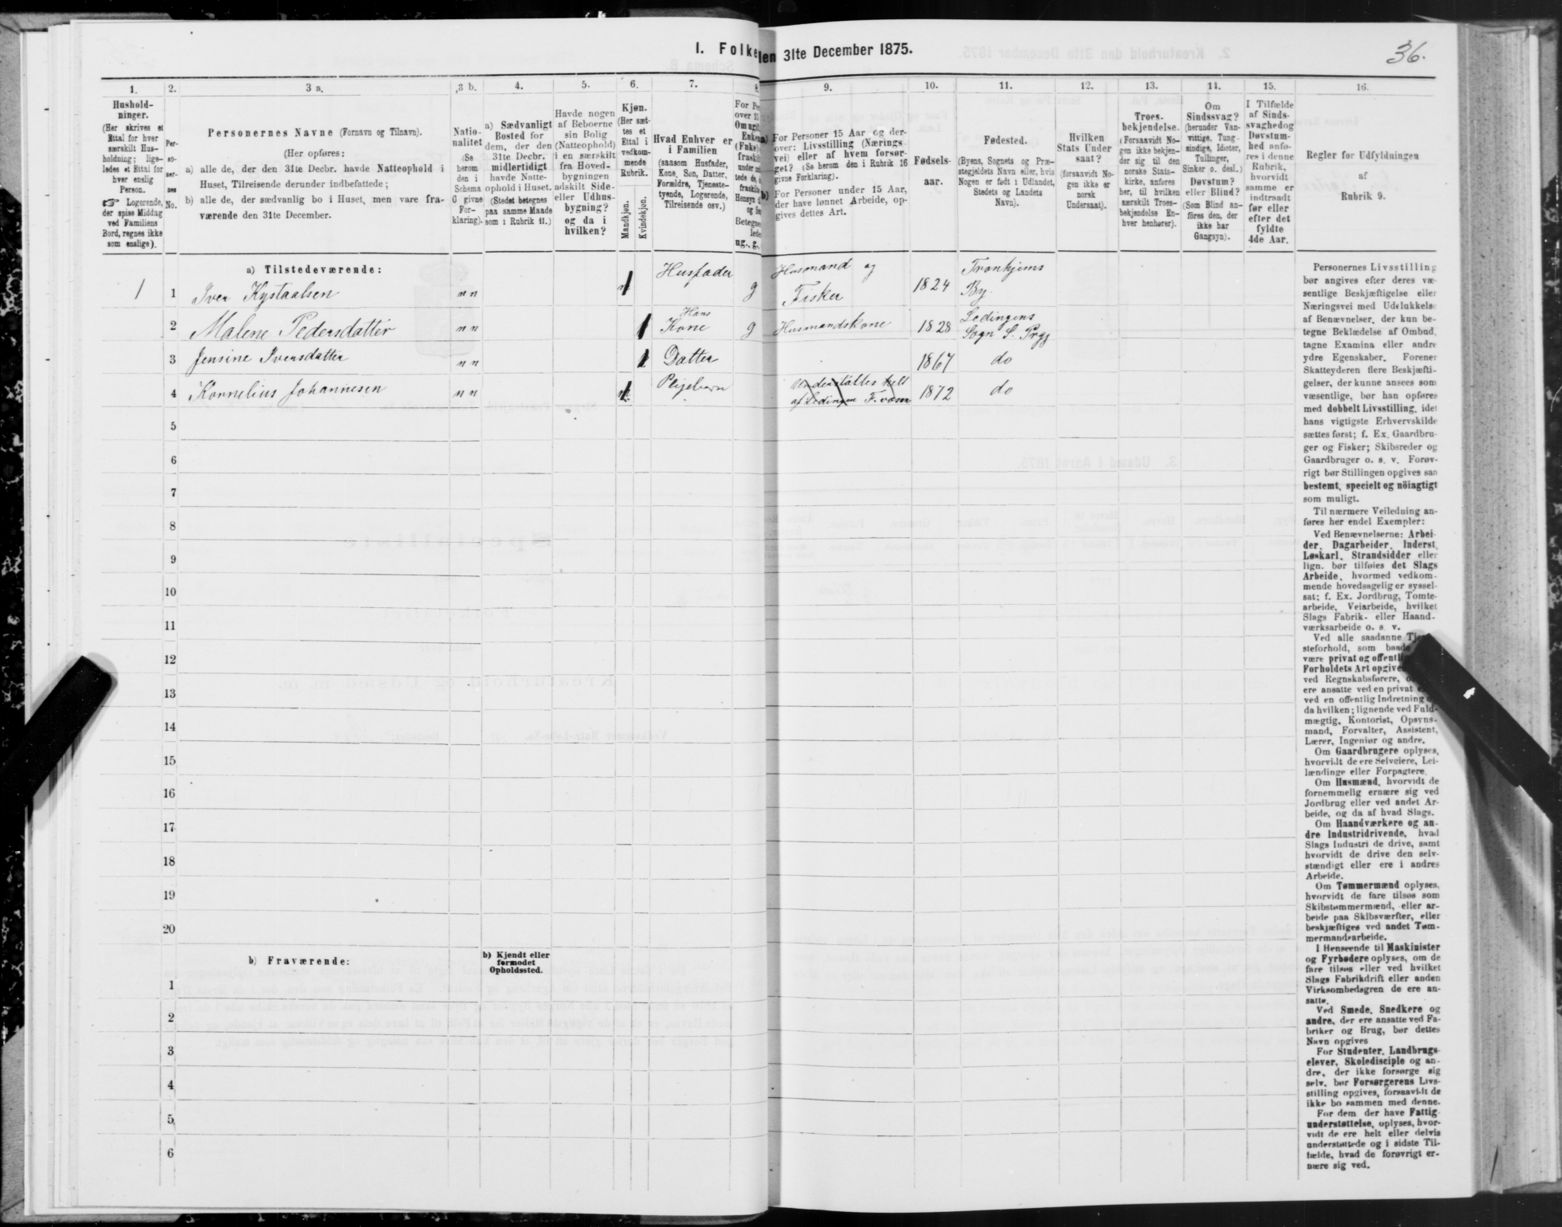 I. Folke
den 31te December 1875.
36.
1.
Hushold-
ninger.
(Her skrives et
Ettal for hver
særskilt Hus-
holdning; lige-
ledes et Ettal for
hver enslig
Person.
☞ Logerende,
der spise Middag
ved Familiens
Bord, regnes ikke
som enslige).
2.
Per-
so-
ner-
nes
No.
3 a.
Personernes Navne (Fornavn og Tilnavn).
(Her opføres:
a) alle de, der den 31te Decbr. havde Natteophold i
Huset, Tilreisende derunder indbefattede;
b) alle de, der sædvanlig bo i Huset, men vare fra-
værende den 31te December.
3 b.
Natio-
nalitet
(Se
herom
den i
Schema
6 givne
For-
klaring).
4.
a) Sædvanligt
Bosted for
dem, der den
31te Decbr.
midlertidigt
havde Natte-
ophold i Huset.
(Stedet betegnes
paa samme Maade
som i Rubrik 11.)
5.
Havde nogen
af Beboerne
sin Bolig
(Natteophold)
i en særskilt
fra Hoved-
bygningen
adskilt Side-
eller Udhus-
bygning?
og da i
hvilken?
6.
Kjøn.
(Her sæt-
tes et
Ettal i
vedkom-
mende
Rubrik.
Mandkjøn.
Kvindekjøn.
7.
Hvad Enhver er
i Familien
(saasom Husfader,
Kone, Søn, Datter,
Forældre, Tjeneste-
tyende, Logerende,
Tilreisende osv.)
8.
ug., g.,
9.
For Personer 15 Aar og der-
over: Livsstilling (Nærings-
vei) eller af hvem forsør-
get? (Se herom den i Rubrik 16
givne Forklaring).
For Personer under 15 Aar,
der have lønnet Arbeide, op-
gives dettes Art.
10.
Fødsels-
aar.
11.
Fødested.
(Byens, Sognets og Præ-
stegjeldets Navn eller, hvis
Nogen er født i Udlandet,
Stedets og Landets
Navn).
12.
Hvilken
Stats Under-
saat?
(forsaavidt No-
gen ikke er
norsk
Undersaat).
13.
Troes-
bekjendelse.
(Forsaavidt No-
gen ikke bekjen-
der sig til den
norske Stats-
kirke, anføres
her, til hvilken
særskilt Troes-
bekjendelse En-
hver henhører).
14.
Om
Sindssvag?
(herunder Van-
vittige, Tung-
sindige, Idioter,
Tullinger,
Sinker o. desl.)
Døvstum?
eller Blind?
(Som Blind an-
føres den, der
ikke har
Gangsyn).
15.
I Tilfælde
af Sinds-
svaghedog
Døvstum-
hed anfø-
res i denne
Rubrik,
hvorvidt
samme er
indtraadt
før eller
efter det
fyldte
4de Aar.
16.
Regler for Udfyldningen
af
Rubrik 9.
a) Tilstedeværende:
1 1 Iver Kystaalsen nn 1 Husfader g Husmand og Fisker 1824 Tronhjems By
2 Malene Pedersdatter nn 1 Hans Kone g Husmandskone 1828 Lødingens Sogn & Prgj
3 Jensine Iversdatter nn 1 Datter 1867 do
4 Kornelius Johannesen nn 1 Plejebarn Understøttes helt af Lødingens F.væsn 1872 do
5
6
7
8
9
10
11
12
13
14
15
16
17
18
19
20
b) Fraværende:
b) Kjendt eller
formodet
Opholdssted.
1
2
3
4
5
6
Personernes Livsstilling
bør angives efter deres væ-
sentlige Beskjæftigelse eller
Næringsvei med Udelukkelse
af Benævnelser, der kun be-
tegne Beklædelse af Ombud,
tagne Examina eller andre
ydre Egenskaber. Forener
Skatteyderen flere Beskjæfti-
gelser, der kunne ansees som
væsentlige, bør han opføres
med dobbelt Livsstilling, idet
hans vigtigste Erhvervskilde
sættes først; f. Ex. Gaardbru-
ger og Fisker; Skibsreder og
Gaardbruger o. s. v. Forøv-
rigt bør Stillingen opgives saa
bestemt, specielt og nöiagtigt
som muligt.
Til nærmere Veiledning an-
føres her endel Exempler:
Ved Benævnelserne: Arbei-
der, Dagarbeider, Inderst,
Løskarl, Strandsidder eller
lign. bør tilføies det Slags
Arbeide, hvormed vedkom-
mende hovedsagelig er syssel-
sat; f. Ex. Jordbrug, Tomte-
arbeide, Veiarbeide, hvilket
Slags Fabrik- eller Haand-
værksarbeide o. s. v.
Ved alle saadanne
steforhold, som
være privat og
Forholdets Art
ved Regnskabsførere,
ere ansatte ved en privat
ved en offentlig Indretning
da hvilken; lignende ved Fuld-
mægtig, Kontorist, Opsyns-
mand, Forvalter, Assistent,
Lærer, Ingeniør og andre.
Om Gaardbrugere oplyses,
hvorvidt de ere Selveiere, Lei-
lændinge eller Forpagtere.
Om Husmænd, hvorvidt de
fornemmelig ernære sig ved
Jordbrug eller ved andet Ar-
beide, og da af hvad Slags.
Om Haandværkere og an-
dre Industridrivende, hvad
Slags Industri de drive, samt
hvorvidt de drive den selv-
stændigt eller ere i andres
Arbeide.
Om Tømmermænd oplyses,
hvorvidt de fare tilsøs som
Skibstømmermænd, eller ar-
beide paa Skibsværfter, eller
beskjæftiges ved andet Tøm-
mermandsarbeide.
I Henseende til Maskinister
og Fyrbødere oplyses, om de
fare tilsøs eller ved hvilket
Slags Fabrikdrift eller anden
Virksombedsgren de ere an-
satte.
Ved Smede, Snedkere og
andre, der ere ansatte ved Fa-
briker og Brug, bør dettes
Navn opgives
For Studenter, Landbrugs-
elever, Skoledisciple og an-
dre, der ikke forsørge sig
selv, bør Forsørgerens Livs-
stilling opgives, forsaavidt de
ikke bo sammen med denne.
For dem der have Fattig-
understøttelse, oplyses, hvor-
vidt de ere helt eller delvis
understøttede og i sidste Til-
fælde, hvad de forøvrigt er-
nære sig ved.